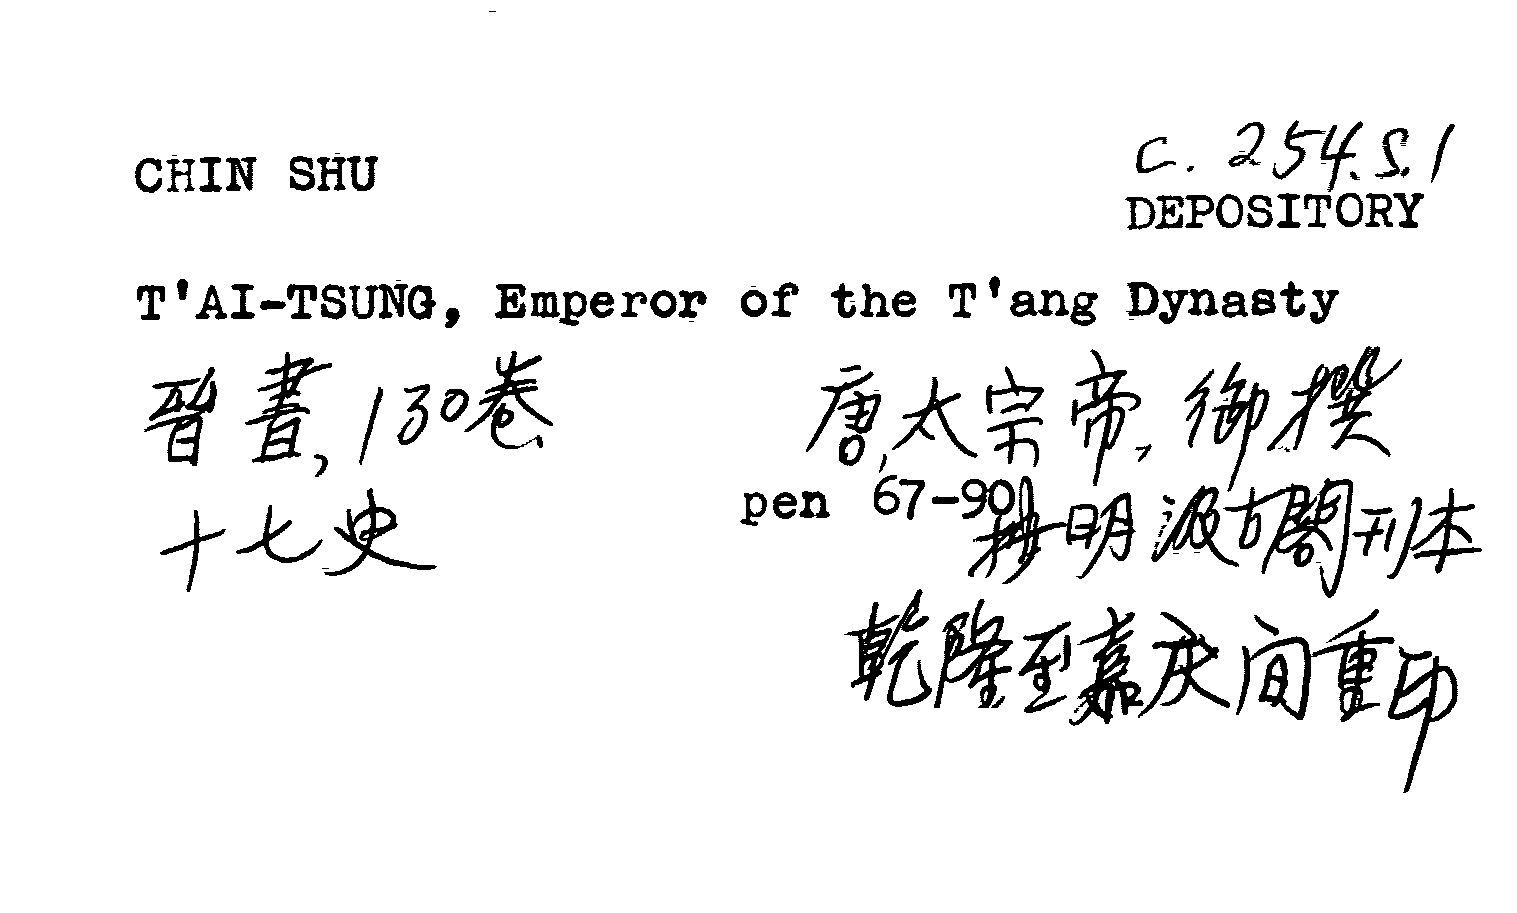 CHIN SHU
C. 254.S.1
DEPOSITORY
T'AI-TSUNG, Emperor of the T'ang Dynasty
晉書, 130卷
唐, 太宗帝, 御撰
pen 67-90
十七史
按明汲古閣刊本
乾隆至嘉庆间重印